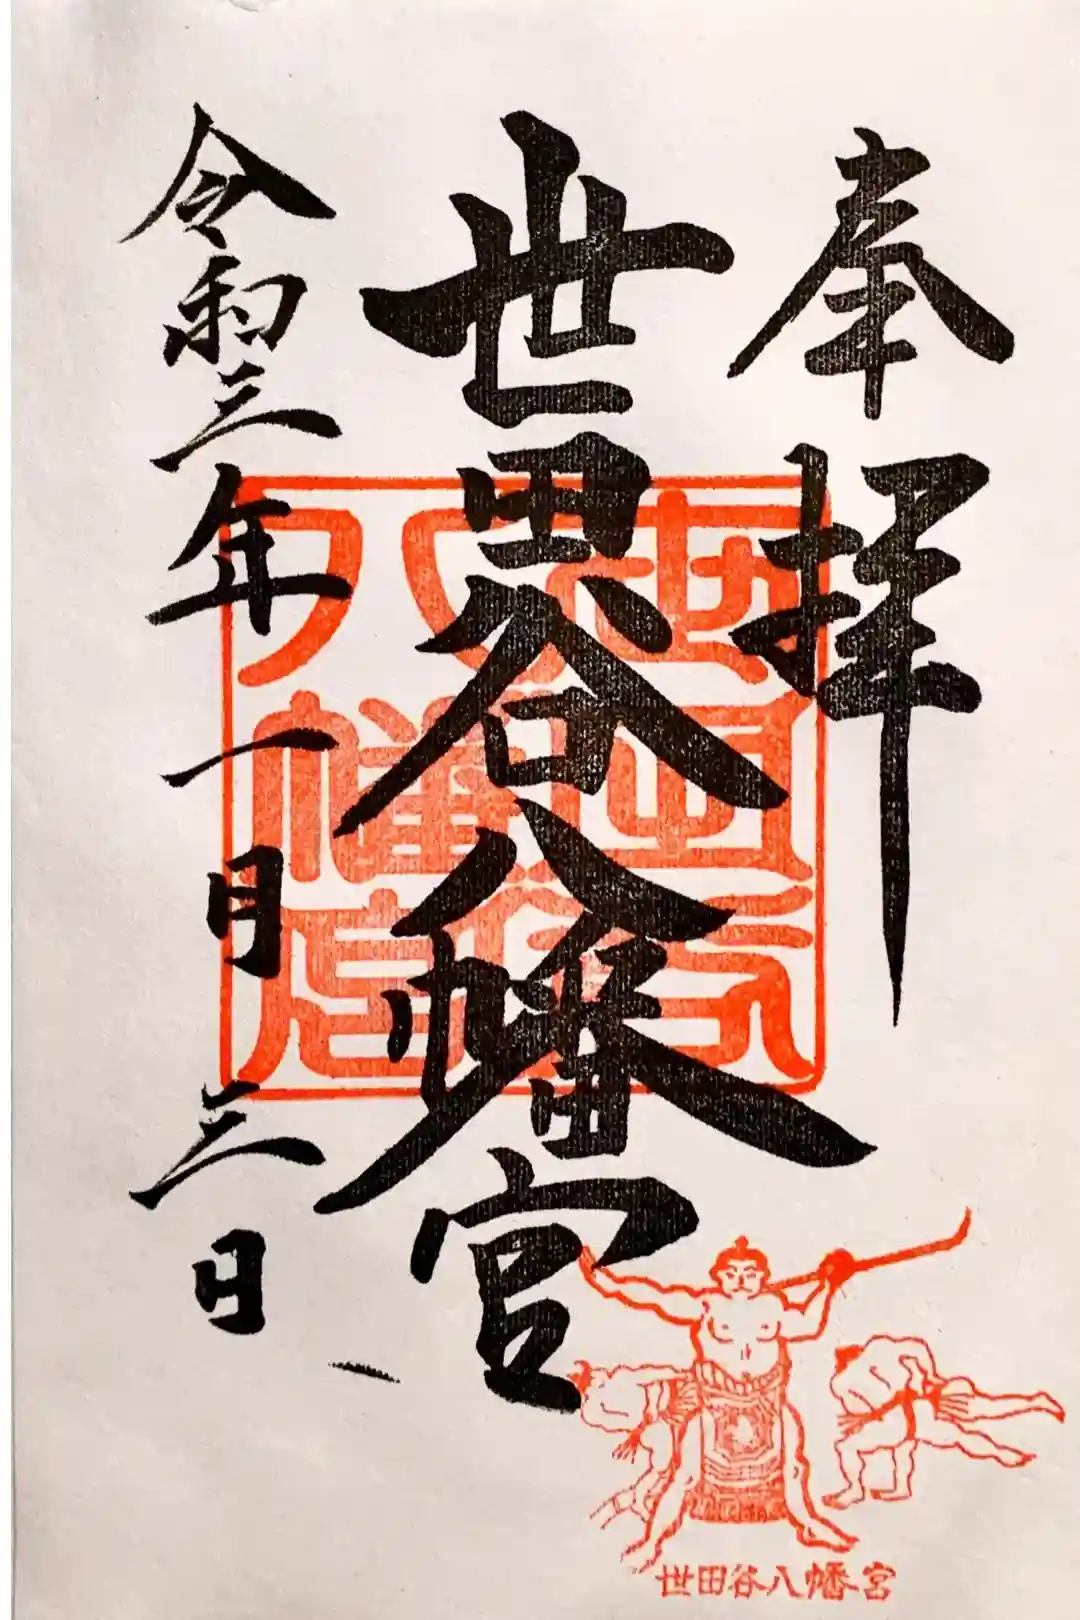 奉拝
世田谷八幡宮
世田谷
八幡宮
令和三年一月三日
世田谷八幡宮